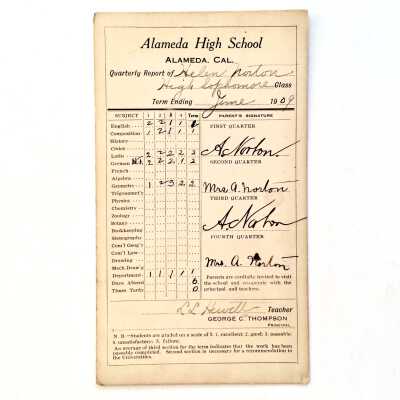 Alameda High School
ALAMEDA, CAL.
Quarterly Report of Helen Norton
High Sophomore Class
Term Ending June 1909
SUBJECT 1 2 3 4 Term PARENT'S SIGNATURE
English 2 2 1 1
Composition 1 2 1 1 1 FIRST QUARTER
History
Civics A. Norton
Latin 2 2 2 2 2 SECOND QUARTER
German 2 2 2 1 2
French
Algebra Mrs A. Norton
Geometry 1 2 3 2 2 THIRD QUARTER
Trigonomet'y
Physics
Chemistry A. Norton
Zoology FOURTH QUARTER
Botany
Bookkeeping
Stenography Mrs. A. Norton
Com'l Geog'y
Com'l Law
Drawing
Mech. Draw'g Parents are cordially invited to visit
Deportment 1 1 1 1 1 the school and cooperate with the
Days Absent 0 principal and teachers.
Times Tardy 0
L L Hewitt Teacher
GEORGE C. THOMPSON
PRINCIPAL
N. B.—Students are graded on a scale of 5: 1. excellent; 2. good; 3. passable;
4. unsatisfactory; 5. failure.
An average of third section for the term indicates that the work has been
passably completed. Second section is necessary for a recommendation to
the Universities.